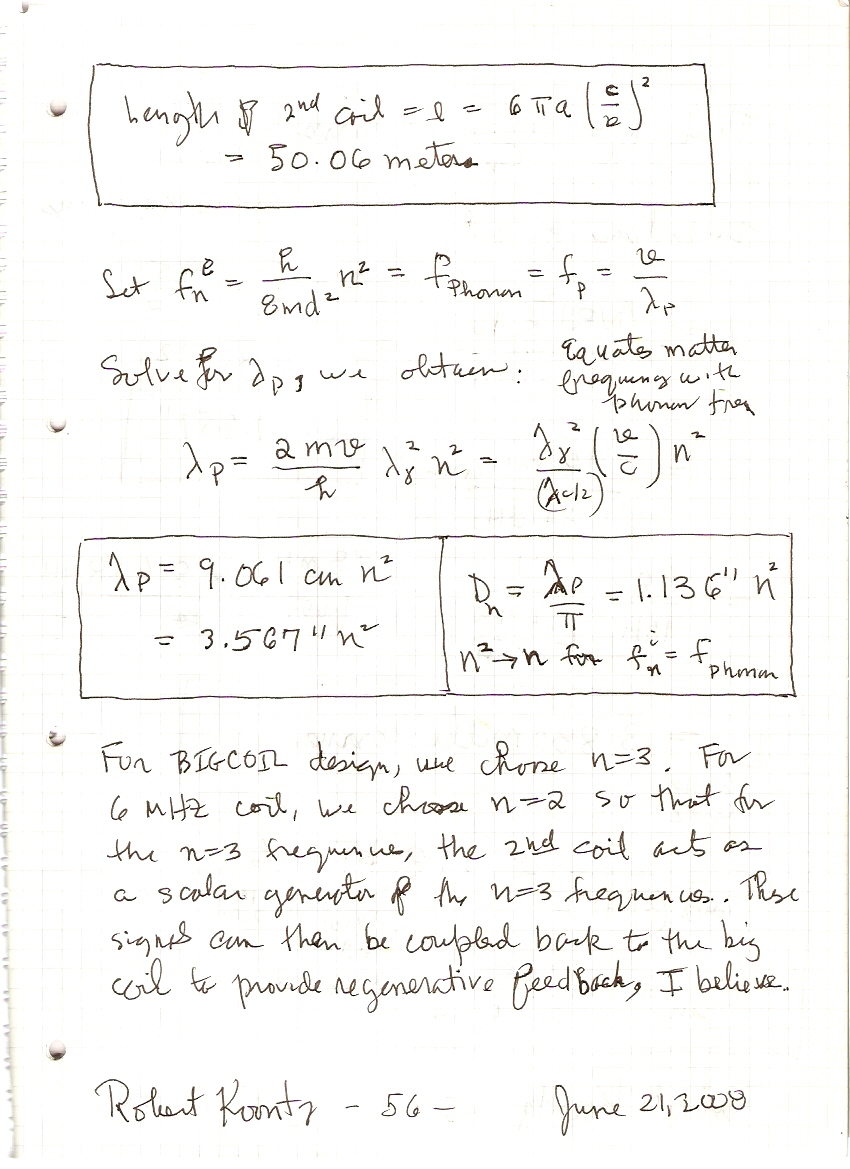 Length of 2nd coil = l = 6πa (c/v)²
= 50.06 meters
Set fₙᵉ = h/8md² n² = f_phonon = f_p = v/λ_p
Solve for λ_p, we obtain:
Equates matter
frequency with
phonon freq
λ_p = 2mv/h λ_γ² n² = λ_γ²/(λ_c/2) (v/c) n²
λ_p = 9.061 cm n²
= 3.567" n²
Dₙ = λ_p/π = 1.136" n²
n² → n for fₙⁱ = f_phonon
For BIGCOIL design, we chose n=3. For
6 MHz coil, we choose n=2 so that for
the n=3 frequencies, the 2nd coil acts as
a scalar generator of the n=3 frequencies. These
signals can then be coupled back to the big
coil to provide regenerative feedback, I believe.
Robert Koontz - 56 - June 21, 2008